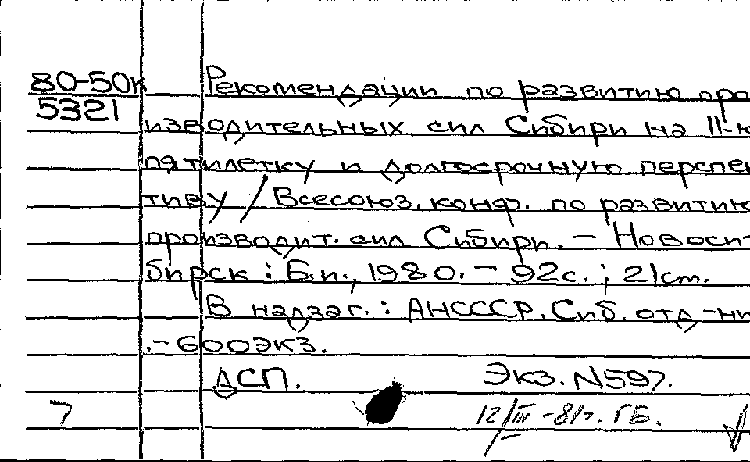 80-50к Рекомендации по развитию про
5321
изводительных сил Сибири на 11-ю
пятилетку и долгосрочную перспек
тиву / Всесоюз. конф. по развитию
производит. сил Сибири. - Новоси
бирск : Б.и., 1980. - 92с. ; 21 см.
В надзаг.: АН СССР. Сиб. отд-ни
.-600экз.
ДСП. Экз. N597.
7 12/III-81г. ГБ.